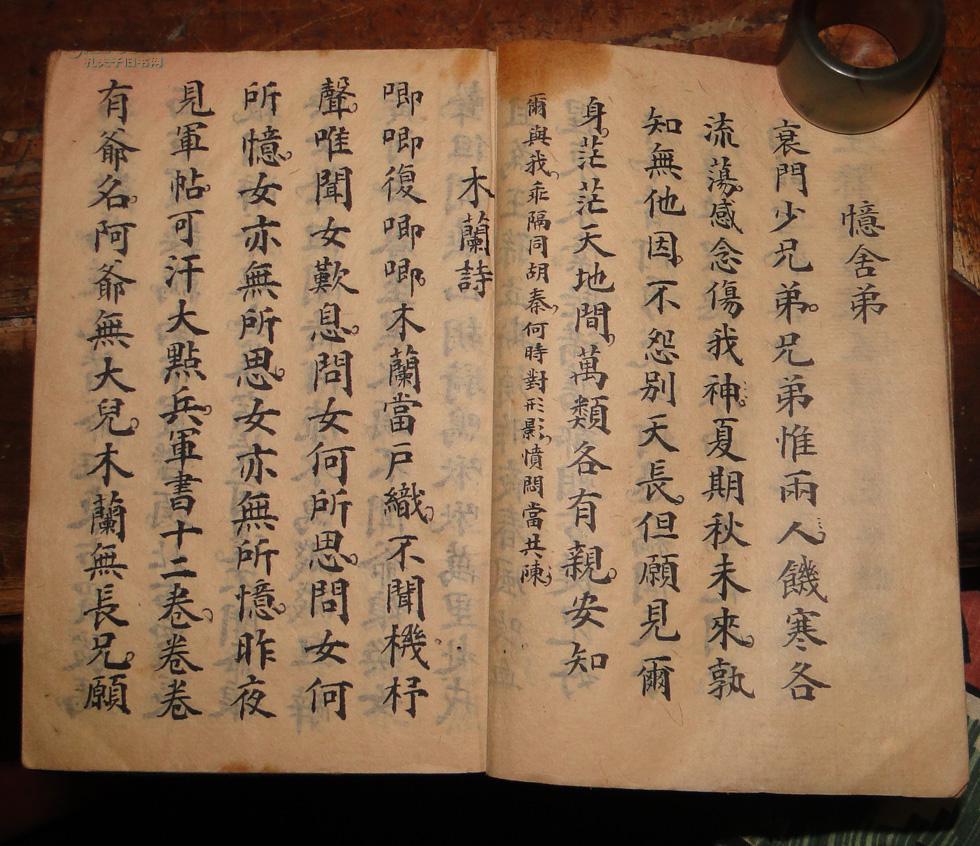 憶舍弟
衰門少兄弟兄弟惟兩人饑寒各
流蕩感念傷我神夏期秋未來孰
知無他因不怨别天長但願見爾
身茫茫天地間萬類各有親安知
爾與我乖隔同胡秦何時對形影憤悶當共陳
木蘭詩
唧唧復唧唧木蘭當户織不聞機杼
聲唯聞女歎息問女何所思問女何
所憶女亦無所思女亦無所憶昨夜
見軍帖可汗大點兵軍書十二卷卷卷
有爺名阿爺無大兒木蘭無長兄願
孔夫子旧书网